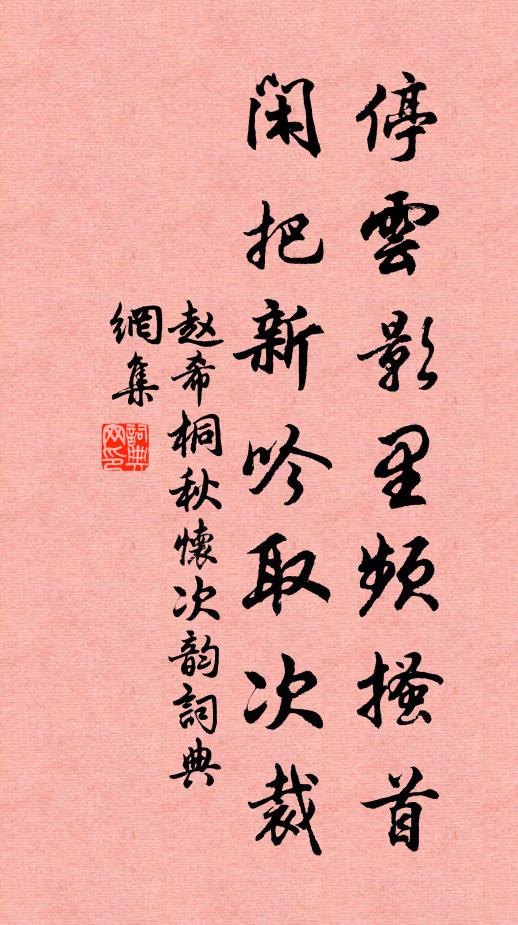 停雲影里頻搔首
閑把新吟取次裁
赵希桐秋懷次韵詞典
網集
詞典
网印